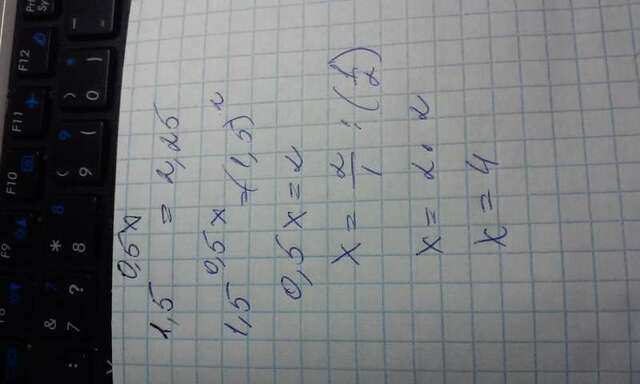 F9 F10 F11 F12
& 7 * 8 ( 9 ) Sy
: 7 ? 8 9 ( 0 )
1,5^{0,5x} = 2,25
1,5^{0,5x} = (1,5)^2
0,5x = 2
x = 2/1 : (1/2)
x = 2 · 2
x = 4